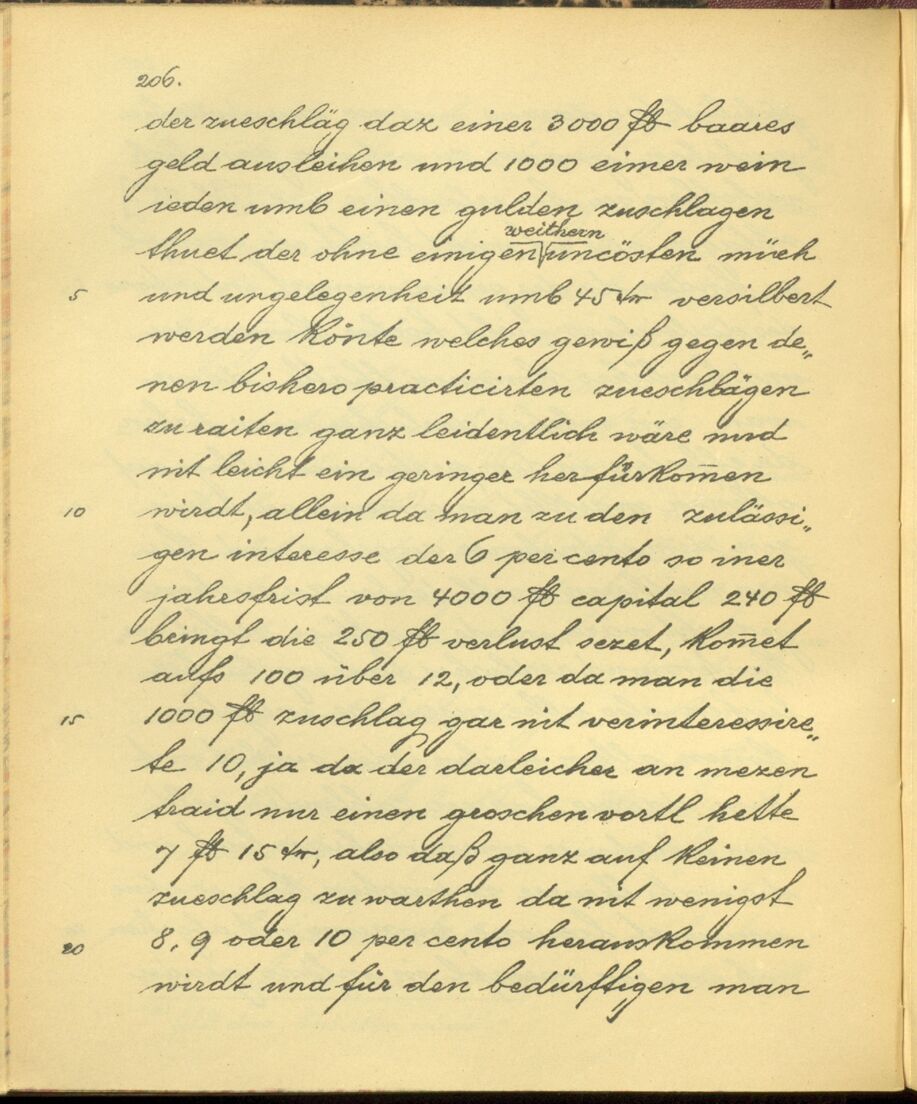 206.
der zueschläg daz einer 3000 fl baares
geld ausleihen und 1000 eimer wein
ieden umb einen gulden zuschlagen
weithern
thuet der ohne einigen uncösten müeh
5 und ungelegenheit umb 45 kr versilbert
werden könte welches gewiß gegen de„
nen bishero practicirten zueschlägen
zu raiten ganz leidentlich wäre und
nit leicht ein geringer herfürkom̅en
10 wirdt, allein da man zu den zulässi„
gen interesse der 6 per cento so iner
jahrsfrist von 4000 fl capital 240 fl
bringt die 250 fl verlust sezet, kom̅et
aufs 100 über 12, oder da man die
15 1000 fl zuschlag gar nit verinteressire„
te 10, ja da der darleicher an mezen
traid nur einen groschen vortl hette
7 fl 15 kr, also daß ganz auf keinen
zueschlag zu warthen da nit wenigst
20 8, 9 oder 10 per cento herauskommen
wirdt und für den bedürfftigen man